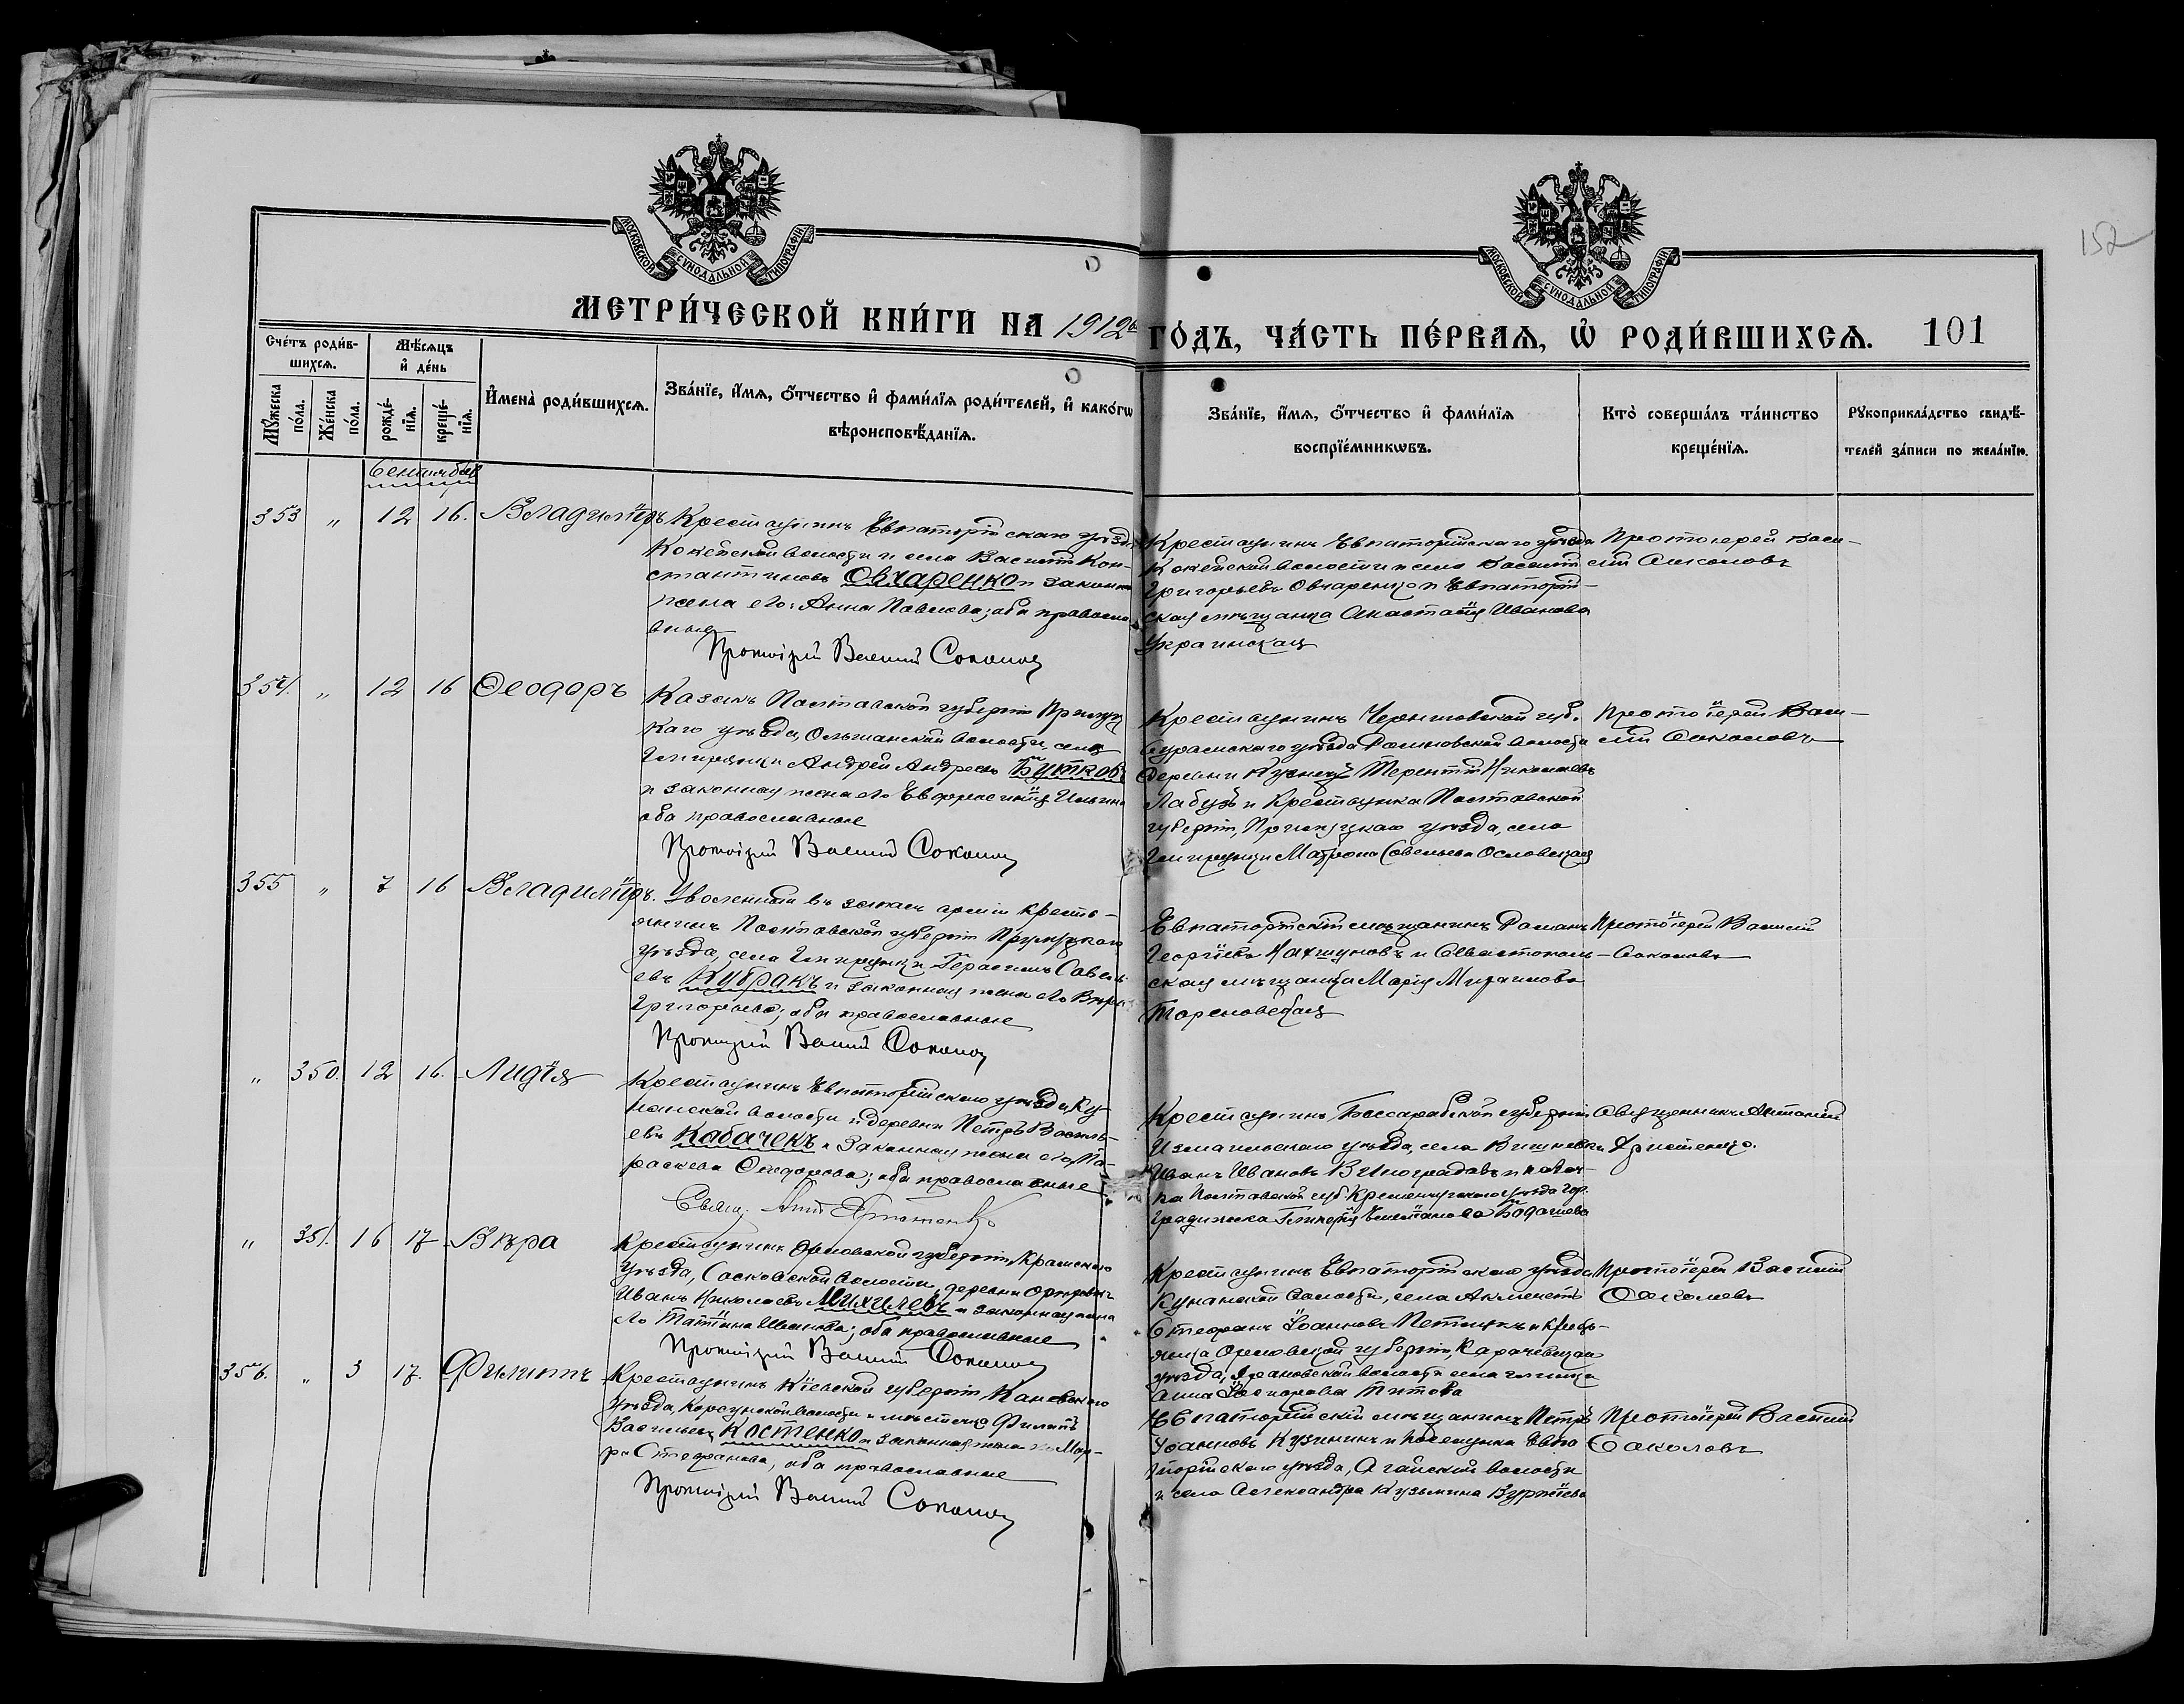 МОСКОВСКОЙ СѴНОДАЛЬНОЙ ТИПОГРАФІИ
МОСКОВСКОЙ СѴНОДАЛЬНОЙ ТИПОГРАФІИ
152
МЕТРИ́ЧЕСКОЙ КНИ́ГИ НА 1912й
ГО́ДЪ, ЧА́СТЬ ПЕ́РВАѦ, Ѡ РОДИ́ВШИХСѦ. 101
Сче́тъ роди́в-
шихсѧ.
Мꙋжеска по́ла.
Же́нска по́ла.
Мѣ́сѧцъ
и де́нь
рожде́-
нїѧ.
креще́-
нїѧ.
Имена̀ роди́вшихсѧ.
Зва́нїе, и́мѧ, ѻ́тчество и фами́лїѧ роди́телей, и како́гѡ
вѣроисповѣ́данїѧ.
Зва́нїе, и́мѧ, ѻ́тчество и фами́лїѧ
воспрїе́мникѡвъ.
Кто̀ соверша́лъ та́инство
креще́нїѧ.
Рꙋкоприкла́дство свидѣ́-
телей за́писи по жела́нїю.
Сентябрь
353 " 12 16. Владиміръ
Крестьянинъ Евпаторійскаго уѣзда
Кокейской волости и села Василій Кон-
стантиновъ Овчаренко и законная
жена его Анна Павлова; оба православ-
вные
Протоіерей Василій Соколовъ
Крестьянинъ Евпаторійскаго уѣзда
Кокейской волости и села Василій
Григорьевъ Овчаренко и Евпаторій-
ская мѣщанка Анастасія Иванова
Украинская
Протоіерей Васи-
лій Соколовъ
354. " 12 16 Ѳеодоръ
Казакъ Полтавской губерніи Прилуц-
каго уѣзда, Ольшанской волости, села
Гмирянки Андрей Андреевъ Бутковъ
и законная жена его Евфросинія Ильина
оба православные
Протоіерей Василій Соколовъ
Крестьянинъ Черниговской губ.
Суражскаго уѣзда волости
деревни Терентій Николаевъ
Лабузъ и Крестьянка Полтавской
губерніи, Прилуцкаго уѣзда, села
Гмирянки Матрона Савельева Ословская
Протоіерей Васи-
лій Соколовъ
355 " 7 16 Владиміръ.
Уволенный въ запасъ арміи кресть-
янинъ Полтавской губерніи Прилуцкаго
уѣзда, села Гмирянки Герасимъ Савель-
евъ Кубракъ и законная жена его Вѣра
Григорьева; оба православные
Протоіерей Василій Соколовъ
Евпаторійскій мѣщанинъ Романъ
Георгіевъ и Севастополь-
ская мѣщанка Марія
Тарновская
Протоіерей Василій
Соколовъ
" 350. 12 16. Лидія
Крестьянинъ Евпаторійскаго уѣзда Ку-
нанской волости и деревни Петръ Василь-
евъ Кабачекъ и законная жена его Па-
раскева Ѳеодорова; оба православные
Крестьянинъ Бессарабской губерніи
Измаильскаго уѣзда, села Вишневки
Иванъ Ивановъ Виноградовъ и
Полтавской губ. Кременчугскаго уѣзда гор.
Градижска
Священникъ Антоній
" 351. 16 17 Вѣра
Крестьянинъ Орловской губерніи, Кромскаго
уѣзда, Сосковской волости, деревни
Иванъ Николаевъ Михилевъ и законная жена
его Татіана Иванова; оба православные
Протоіерей Василій Соколовъ
Крестьянинъ Евпаторійскаго уѣзда
Кунанской волости, села Акмечеть
Стефанъ Іоанновъ и кресть-
янка Орловской губерніи, Карачевскаго
уѣзда, волости села
Анна Титова
Протоіерей Василій
Соколовъ
356. " 3 17. Филиппъ
Крестьянинъ Кіевской губерніи Каневскаго
уѣзда, Корсунской волости и мѣстечка Филиппъ
Васильевъ Костенко и законная жена Мав-
ра Стефанова, оба православные
Протоіерей Василій Соколовъ
Евпаторійскій мѣщанинъ Петръ
Іоанновъ Кузинъ и поселянка Евпа-
торійскаго уѣзда, Агайской волости
и села Александра Кузьмина
Протоіерей Василій
Соколовъ